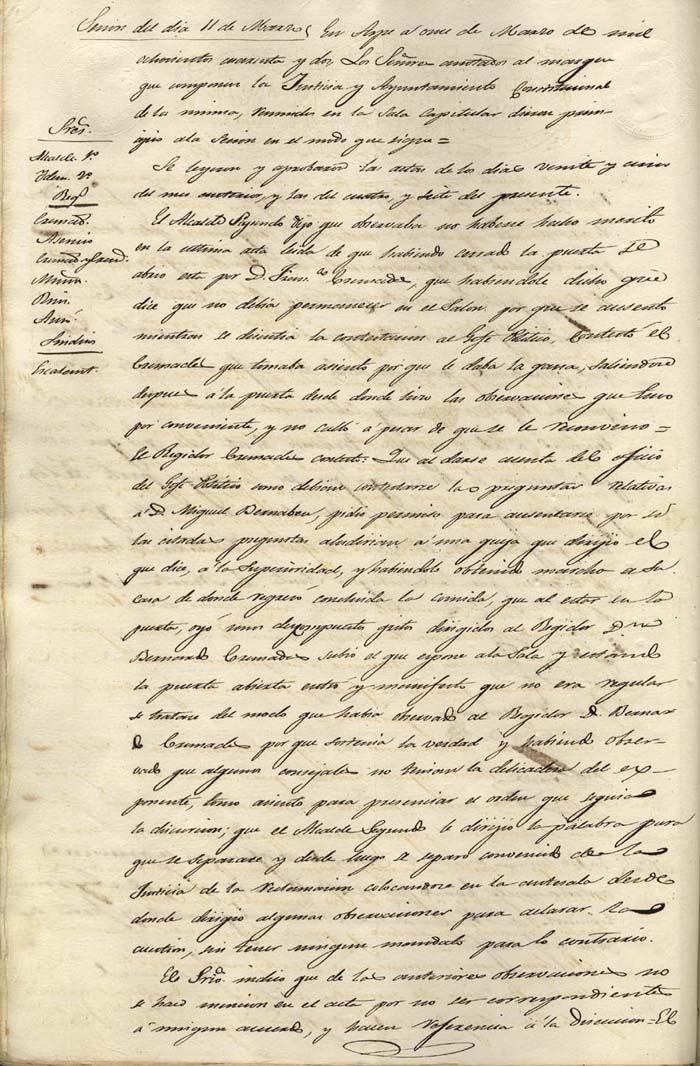 Sesion del dia 11 de Marzo, En Aspe a once de Marzo de mil
ochocientos cuarenta y dos Los Señores anotados al margen
que componen la Justicia y Ayuntamiento Constitucional
de la misma, reunidos en la Sala Capitular dieron prin-
cipio a la sesion en el modo que sigue =
Sres.
Alcalde 1º
Idem. 2º
Regs
Cremads.
Asencio
Almiña.
Síndicos
Escalant.
Se leyeron y aprobaron las actas de los dias veinte y cinco
del mes anterior, y las del cuatro, y siete del presente.
El Alcalde Segundo dijo que observaba no haberse hecho merito
en la ultima acta leida de que habiendo cerrado la puerta se
abrio esta por D. Franco Cremades, que habiendole dicho que
dice que no debia permanecer en el Salon por que se ausentó
mientras se discutia la contestacion al Gefe Politico, contestó el
Cremades que tomaba asiento por que le daba la gana, saliendose
despues á la puerta desde donde hizo las observaciones que tuvo
por conveniente, y no calló á pesar de que se le reconvino =
El Regidor Cremades contestó: Que al darse cuenta del oficio
del Gefe Politico como debieron contestarse las preguntas relativas
a D. Miguel Bernabeu, pidio permiso para ausentarse por sí
las citadas preguntas aludirian á una queja que dirijio el
que dice, á la Superioridad, y habiendolo obtenido marcho a su
casa de donde regresó concluida la comida, que al estar en la
puerta, oyó unos descompuestos gritos dirigidos al Regidor Dn
Bernardo Cremades subió el que espone a la Sala y estando
la puerta abierta entró y manifestó que no era regular
se tratase del modo que habia observado al Regidor D. Bernar
do Cremades por que sostenia la verdad y habiendo obser-
vado que algunos consejales no tenian la delicadeza del ex-
ponente, tomó asiento para presenciar el orden que seguia
la discusion; que el Alcalde Segundo le dirijió la palabra para
que se separase y desde luego se separó convencido de la
Justicia de la reclamacion colocandose en la antesala desde
donde dirigio algunas observaciones para aclarar la
cuestion, sin tener ningun mandato para lo contrario.
El Srio. indicó que de las anteriores observaciones no
se hace mencion en el acta por no ser correspondientes
á ningun acuerdo, y hacen referencia á la Discusion = El